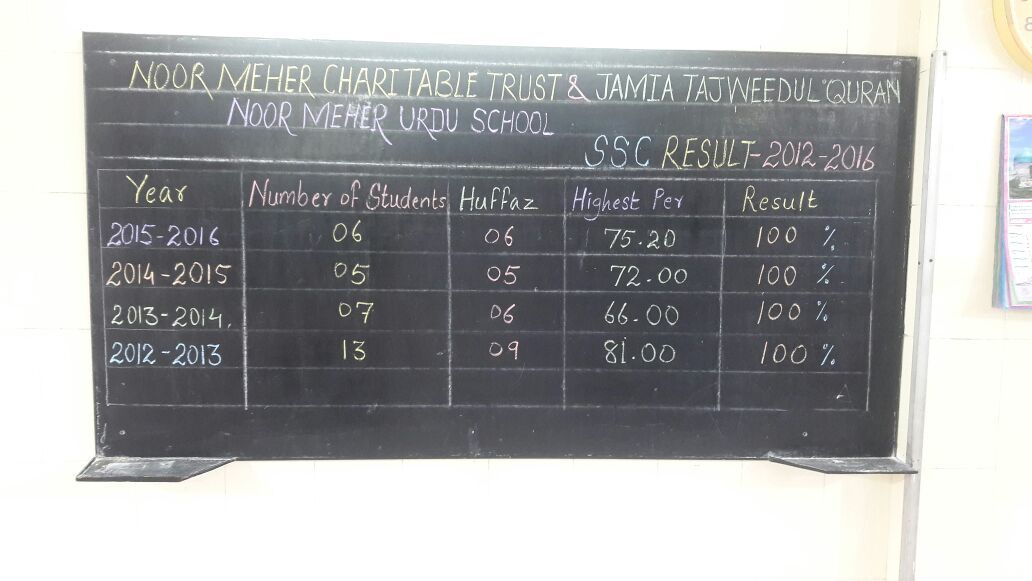 NOOR MEHER CHARITABLE TRUST & JAMIA TAJWEEDUL QURAN
NOOR MEHER URDU SCHOOL
SSC RESULT-2012-2016
Year Number of Students Huffaz Highest Per Result
2015-2016 06 06 75.20 100 %
2014-2015 05 05 72.00 100 %
2013-2014. 07 06 66.00 100 %
2012-2013 13 09 81.00 100 %